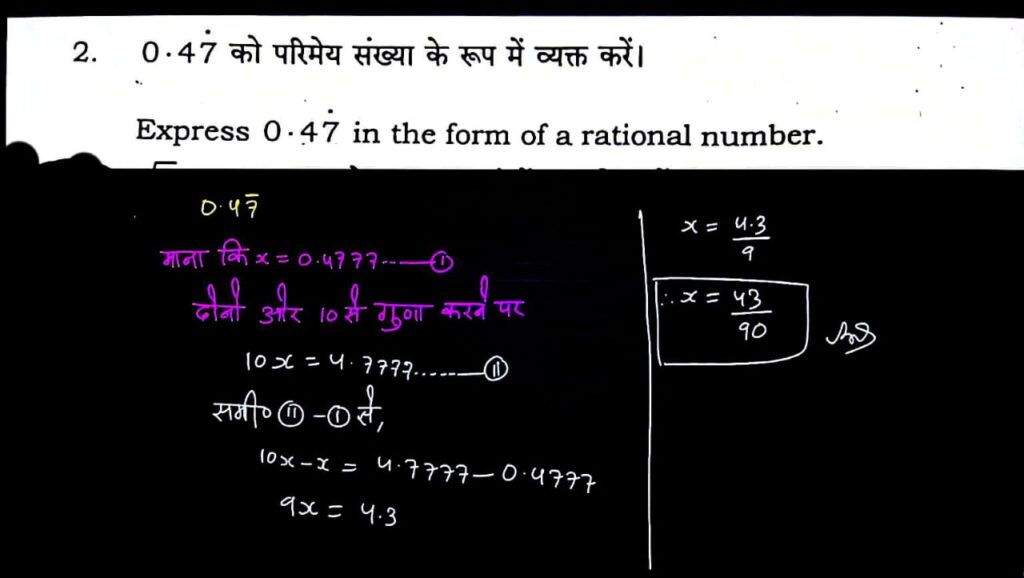 2. 0·47̇ को परिमेय संख्या के रूप में व्यक्त करें।
Express 0·47̇ in the form of a rational number.
0·47̅
माना कि x = 0.4777...——Ⓘ
दोनो ओर 10 से गुणा करने पर
10x = 4.7777......——Ⓘ Ⓘ
समी० ⑪ - Ⓘ से,
10x-x = 4.7777 - 0.4777
9x = 4.3
x = 4.3/9
∴ x = 43/90 Ans